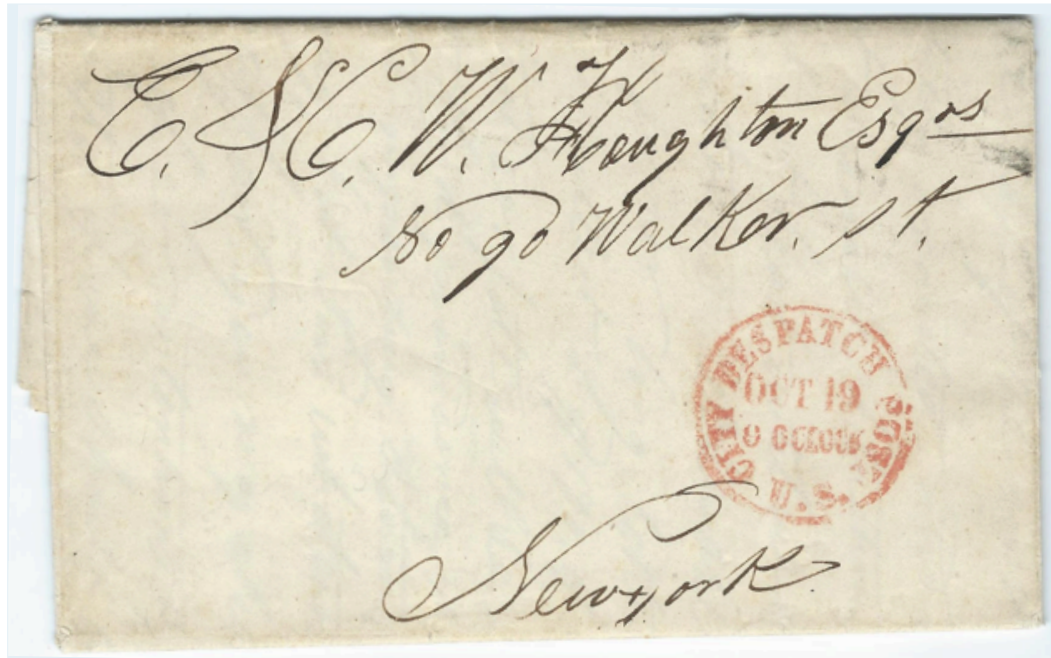 E. & C. W. Houghton Esqrs
No 90 Walker. st.
CITY DESPATCH POST
OCT 19
O'CLOCK
U.S.
New York